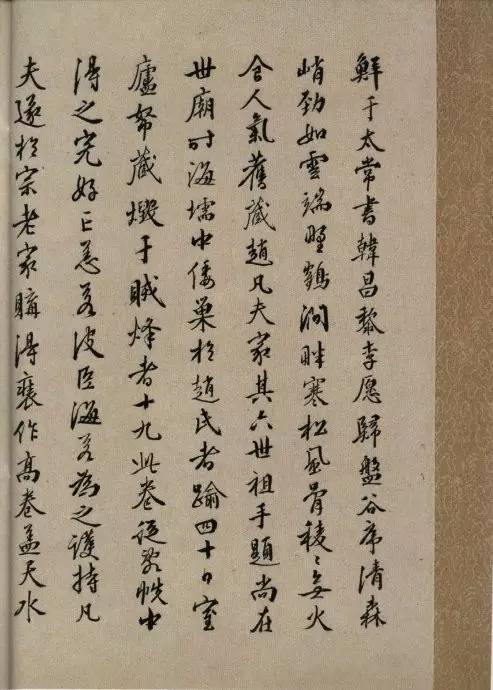 鮮于太常書韓昌黎李愿歸盤谷序清森
峭勁如雲端野鶴澗畔寒松風骨稜〻無火
食人氣舊藏趙凡夫家其六世祖手題尚在
世廟时海壖中倭巢於趙氏者踰四十日室
廬帑藏燬于賊烽者十九此卷從帙中
得之完好亡恙若波臣海若為之護持凡
夫遂於宗老家購得裝作高卷蓋天水